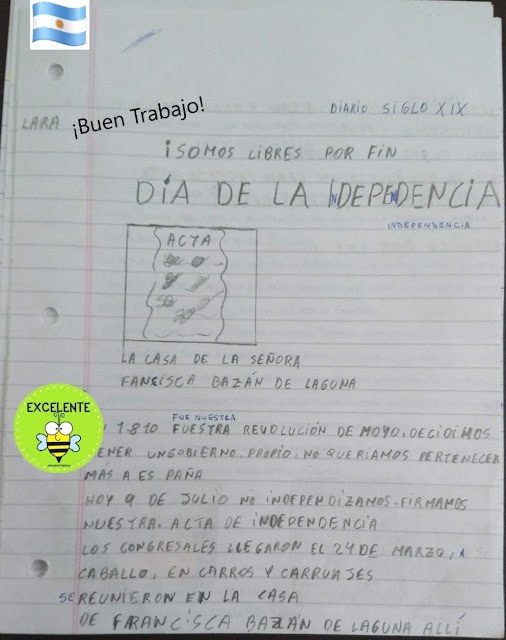 DIARIO SIGLO XIX
LARA
¡Buen Trabajo!
¡SOMOS LIBRES POR FIN
DÍA DE LA INDEPENDENCIA
INDEPENDENCIA
ACTA
LA CASA DE LA SEÑORA
FANCISCA BAZÁN DE LAGUNA
EXCELENTE
FUE NUESTRA
1.810 FUESTRA REVOLUCIÓN DE MOYO. DECIDIMOS
TENER UNGOBIERNO. PROPIO, NO QUERIAMOS PERTENECER
MÁS A ES PAÑA
HOY 9 DE JULIO NO INDEPENDIZAMOS. FIRMAMOS
NUESTRA. ACTA DE INDEPENDENCIA
LOS CONGRESALES LLEGARON EL 24 DE MARZO, A
CABALLO, EN CARROS Y CARRUAJES
SE REUNIERON EN LA CASA
DE FRANCISCA BAZÁN DE LAGUNA ALLÍ